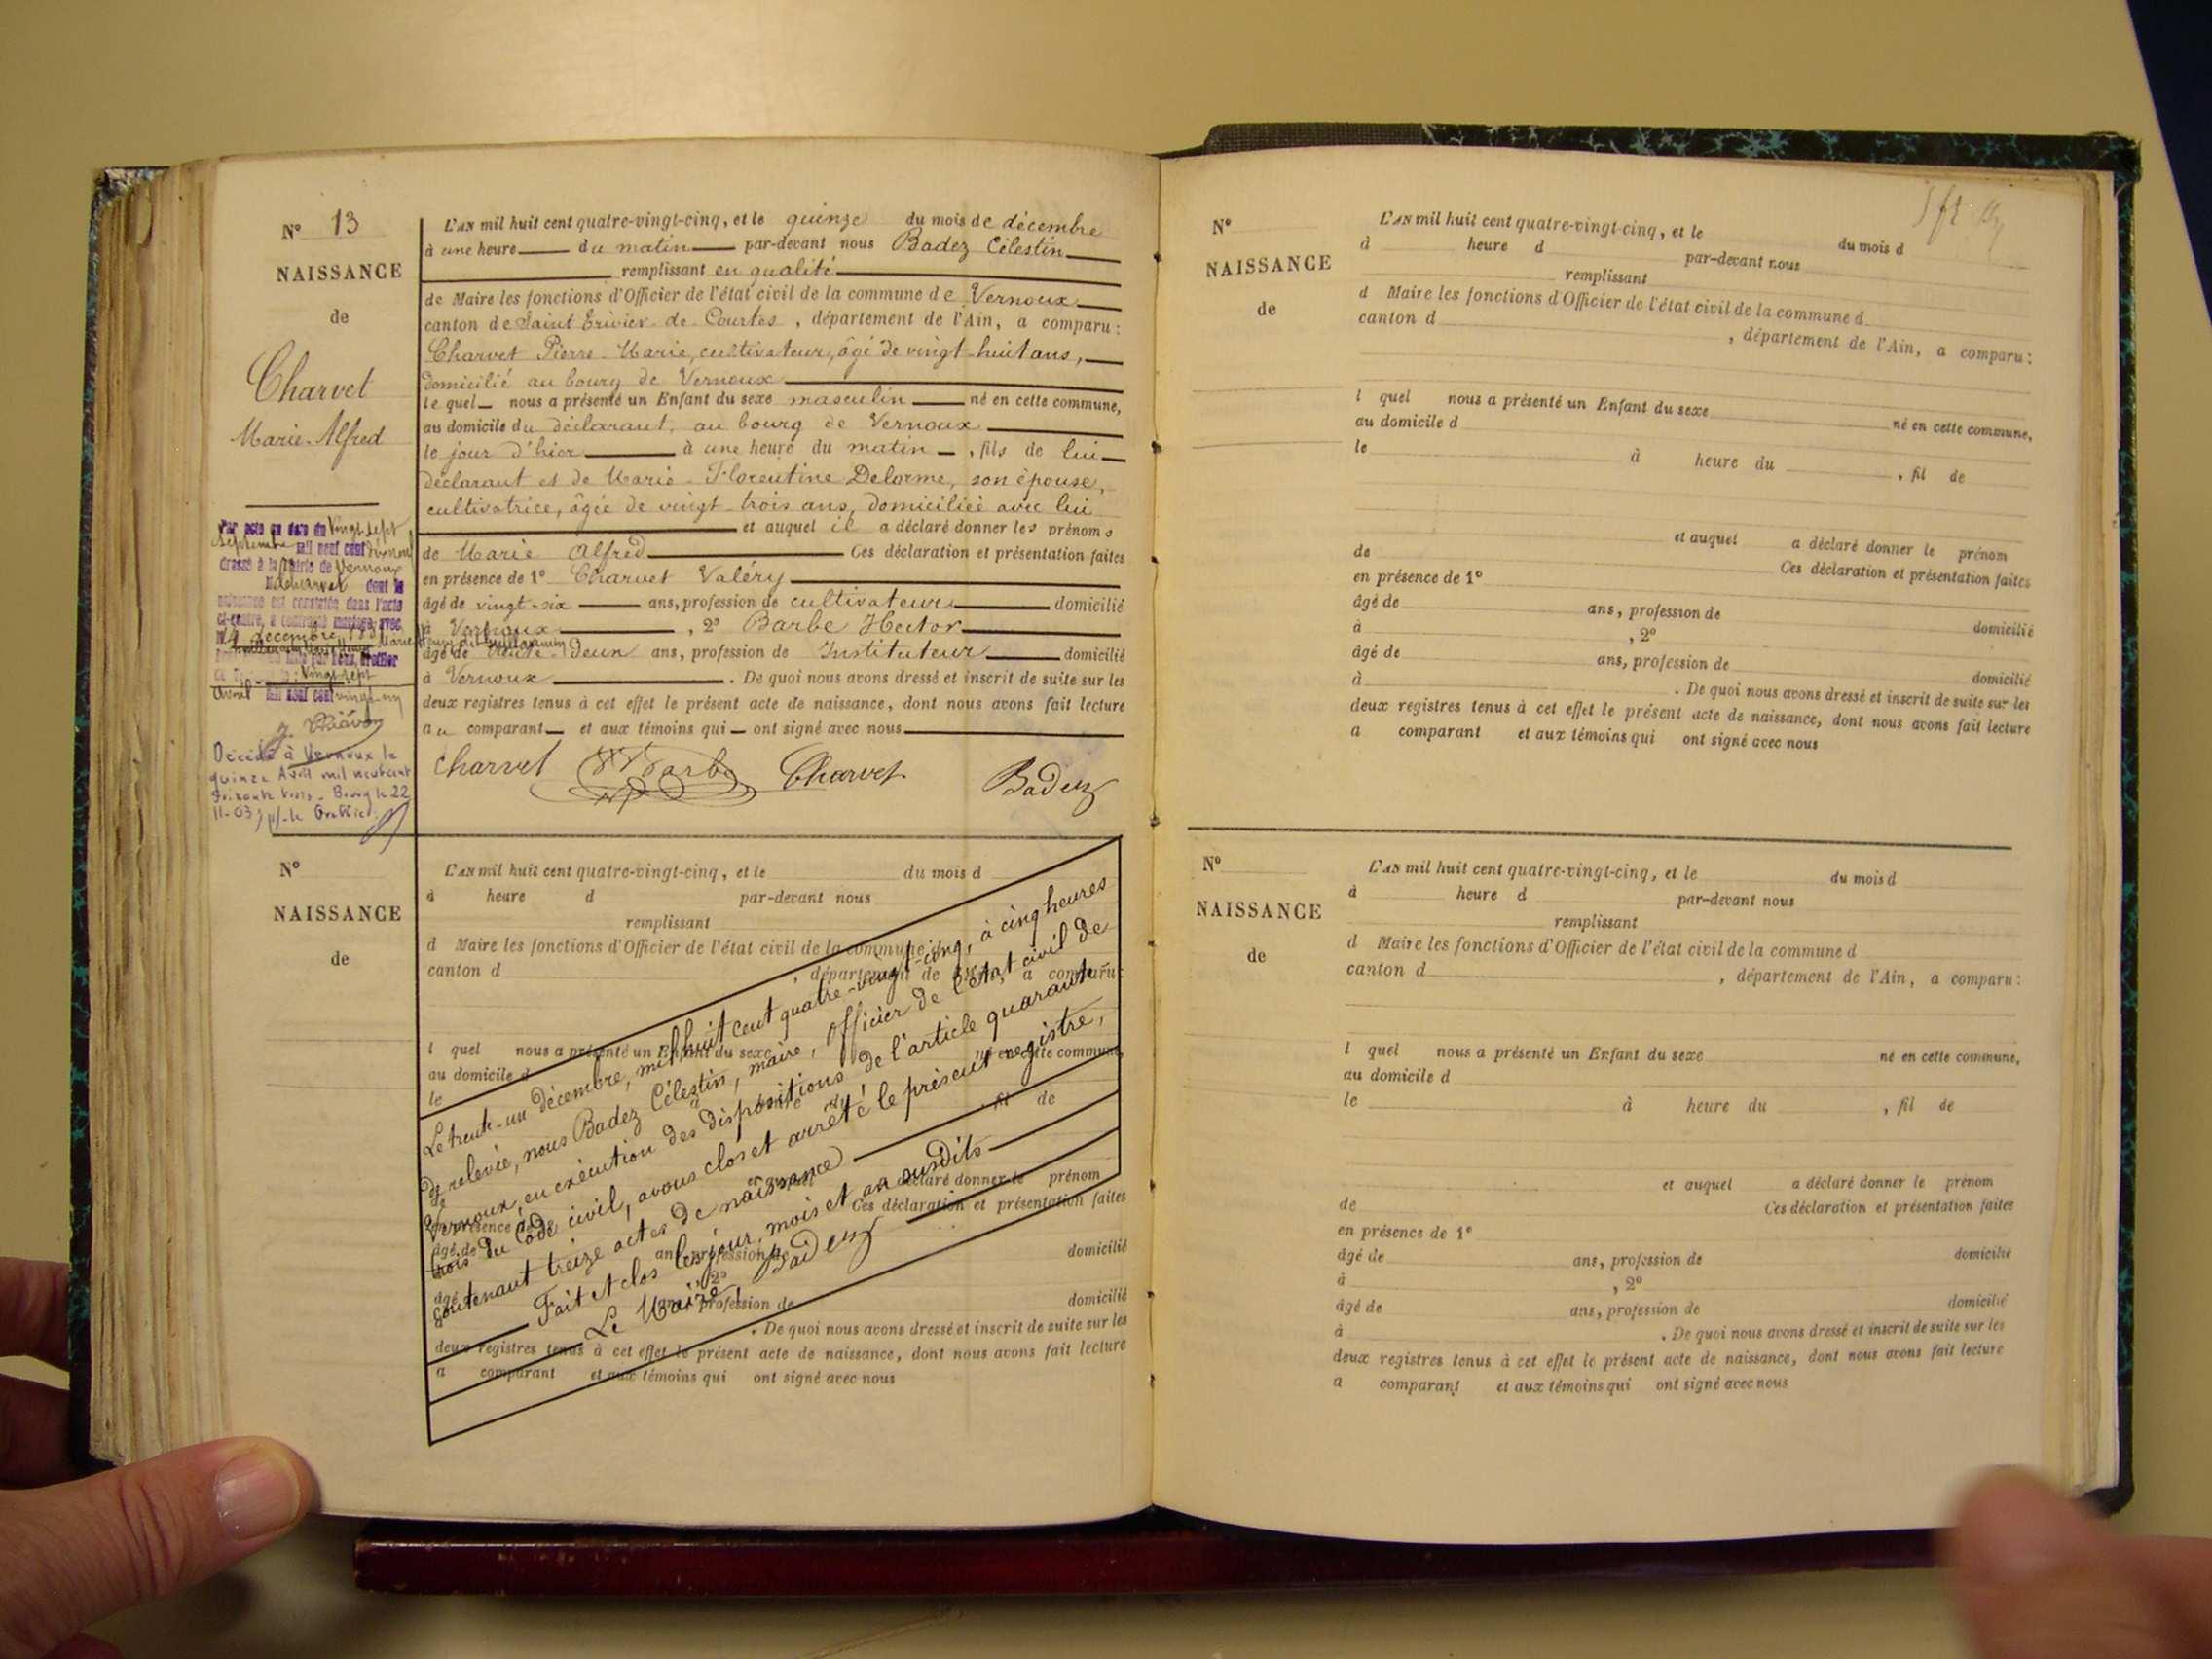 N° 13
NAISSANCE
de
Charvet
Marie-Alfred
L'AN mil huit cent quatre-vingt-cinq, et le quinze du mois de décembre
à une heure du matin par-devant nous Badez Célestin
remplissant en qualité
de Maire les fonctions d'Officier de l'état civil de la commune de Vernoux
canton de Saint Trivier-de-Courtes, département de l'Ain, a comparu:
Charvet Pierre-Marie, cultivateur, âgé de vingt-huit ans,
domicilié au bourg de Vernoux
le quel nous a présenté un Enfant du sexe masculin né en cette commune,
au domicile du déclarant, au bourg de Vernoux
le jour d'hier à une heure du matin, fils de lui
déclarant et de Marie-Florentine Delorme, son épouse,
cultivatrice, âgée de vingt-trois ans, domiciliée avec lui
et auquel il a déclaré donner les prénoms
de Marie Alfred Ces déclaration et présentation faites
en présence de 1° Charvet Valéry
âgé de vingt-six ans, profession de cultivateur domicilié
à Vernoux, 2° Barbe Hector
âgé de deux ans, profession de Instituteur domicilié
à Vernoux. De quoi nous avons dressé et inscrit de suite sur les
deux registres tenus à cet effet le présent acte de naissance, dont nous avons fait lecture
au comparant et aux témoins qui ont signé avec nous
Charvet Barbe Charvet Badez
Par acte en date du vingt sept
septembre mil neuf cent
dressé à la Mairie de Vernoux
Charvet dont la
naissance est constatée dans l'acte
ci-contre, a contracté mariage avec
vingt sept
avril mil neuf cent vingt-un
Décédé à Vernoux le
quinze Avril mil neuf cent
soixante trois - Bourg le 22
11-63 p/ le Greffier
N°
NAISSANCE
de
L'AN mil huit cent quatre-vingt-cinq, et le du mois d
à heure d par-devant nous
remplissant
d Maire les fonctions d'Officier de l'état civil de la commune d
canton d, département de l'Ain, a comparu:
l quel nous a présenté un Enfant du sexe né en cette commune,
au domicile d
le à heure du, fil de
et auquel a déclaré donner le prénom
de Ces déclaration et présentation faites
en présence de 1°
âgé de ans, profession de domicilié
à, 2°
âgé de ans, profession de domicilié
à. De quoi nous avons dressé et inscrit de suite sur les
deux registres tenus à cet effet le présent acte de naissance, dont nous avons fait lecture
a comparant et aux témoins qui ont signé avec nous
Le trente-un décembre, mil huit cent quatre-vingt-cinq, à cinq heures
de relevée, nous Badez Célestin, maire, officier de l'état civil de
Vernoux, en exécution des dispositions de l'article quarante-
trois du Code civil, avons clos et arrêté le présent registre,
contenant treize actes de naissance
Fait et clos les jour, mois et an susdits
Le Maire, Badez
N°
NAISSANCE
de
L'AN mil huit cent quatre-vingt-cinq, et le du mois d
à heure d par-devant nous
remplissant
d Maire les fonctions d'Officier de l'état civil de la commune d
canton d, département de l'Ain, a comparu:
l quel nous a présenté un Enfant du sexe né en cette commune,
au domicile d
le à heure du, fil de
et auquel a déclaré donner le prénom
de Ces déclaration et présentation faites
en présence de 1°
âgé de ans, profession de domicilié
à, 2°
âgé de ans, profession de domicilié
à. De quoi nous avons dressé et inscrit de suite sur les
deux registres tenus à cet effet le présent acte de naissance, dont nous avons fait lecture
a comparant et aux témoins qui ont signé avec nous
N°
NAISSANCE
de
L'AN mil huit cent quatre-vingt-cinq, et le du mois d
à heure d par-devant nous
remplissant
d Maire les fonctions d'Officier de l'état civil de la commune d
canton d, département de l'Ain, a comparu:
l quel nous a présenté un Enfant du sexe né en cette commune,
au domicile d
le à heure du, fil de
et auquel a déclaré donner le prénom
de Ces déclaration et présentation faites
en présence de 1°
âgé de ans, profession de domicilié
à, 2°
âgé de ans, profession de domicilié
à. De quoi nous avons dressé et inscrit de suite sur les
deux registres tenus à cet effet le présent acte de naissance, dont nous avons fait lecture
a comparant et aux témoins qui ont signé avec nous